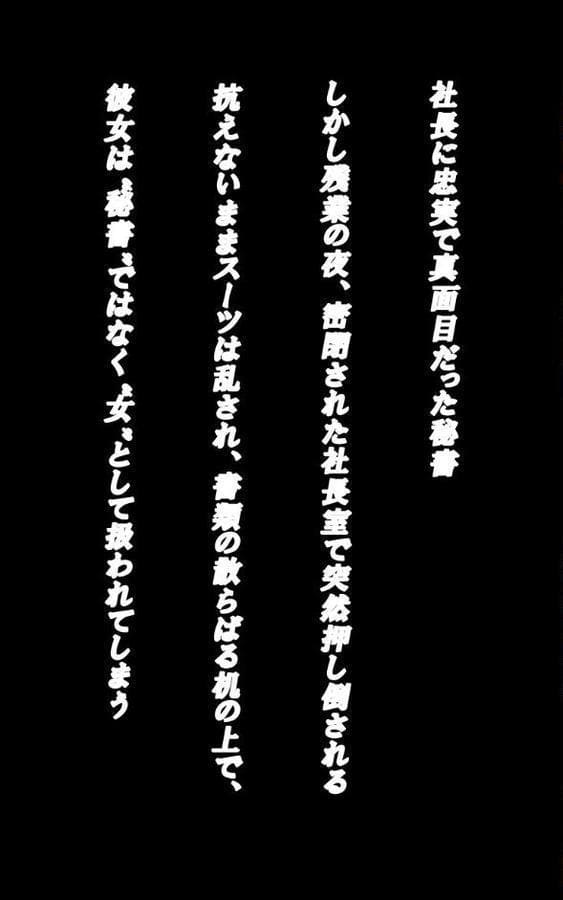 社長に忠実で真面目だった秘書
しかし残業の夜、密閉された社長室で突然押し倒される
抗えないままスーツは乱され、書類の散らばる机の上で、
彼女は〝秘書〟ではなく〝女〟として扱われてしまう